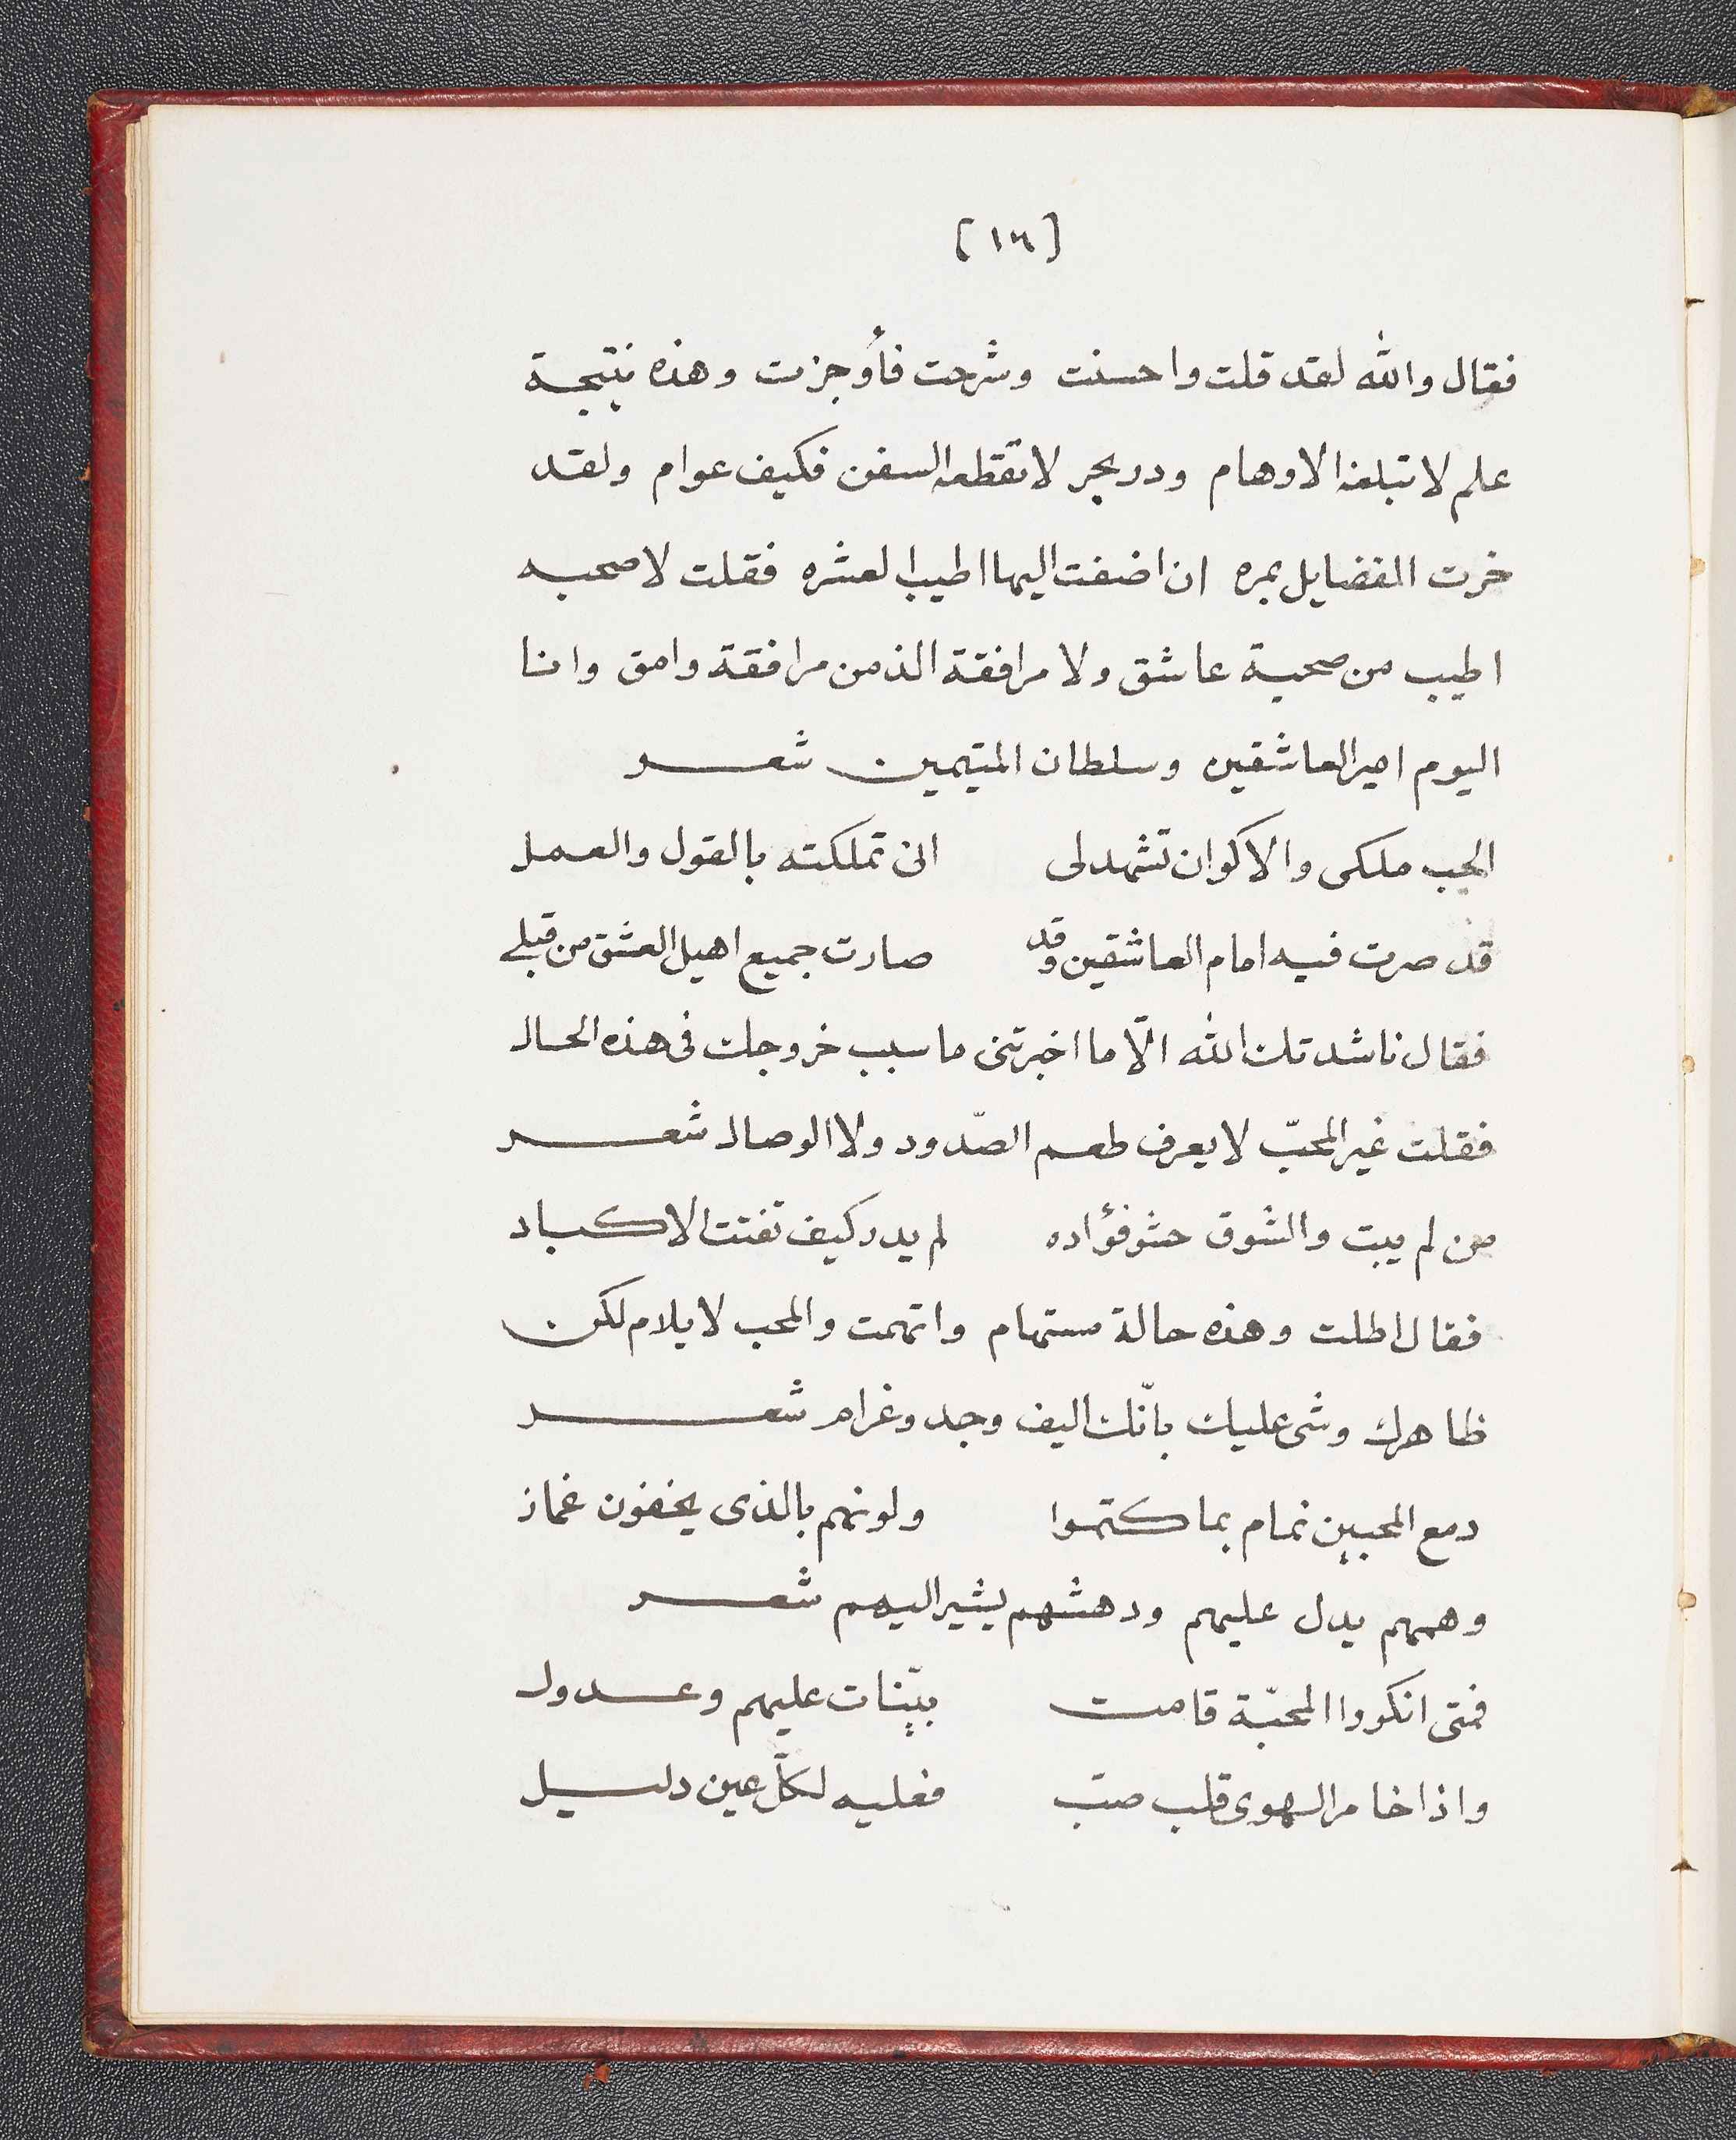 [١٦]
فقال والله لقد قلت واحسنت وشرحت فأوجزت وهذه نتيجة
علم لا تبلغه الاوهام ودر بحر لا تقطعه السفن فكيف عوام ولقد
خرت الفضايل بمره ان اضفت اليها اطيب العشره فقلت لا صحبه
اطيب من صحبة عاشق ولا مرافقة الذ من مرافقة وامق وانا
اليوم امير العاشقين وسلطان المتيمين شعر
الحب ملكى والاكوان تشهد لى انى تملكته بالقول والعمل
قد صرت فيه امام العاشقين وقد صارت جميع اهيل العشق من قبلے
فقال ناشدتك الله الّا ما اخبرتنى ما سبب خروجك فى هذه الحال
فقلت غير المحبّ لا يعرف طعم الصّدود ولا الوصال شعر
من لم يبت والشوق حشو فؤاده لم يدر كيف تفتت الاكباد
فقال اطلت وهذه حالة مستهام واتهمت والمحب لا يلام لكن
ظاهرك وشى عليك بانّك اليف وجد وغرام شعر
دمع المحبين نمام بما كتموا ولونهم بالذى يخفون غماز
وهمهم يدل عليهم ودهشهم يشير اليهم شعر
فمتى انكروا المحبّة قامت بيّنات عليهم وعدول
واذا خامر الهوى قلب صبّ فعليه لكلّ عين دليل